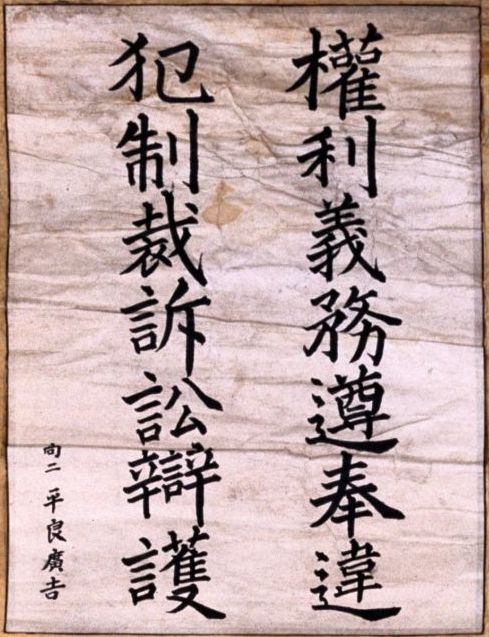 權利義務遵奉違
犯制裁訴訟辯護
尚二 平良廣吉